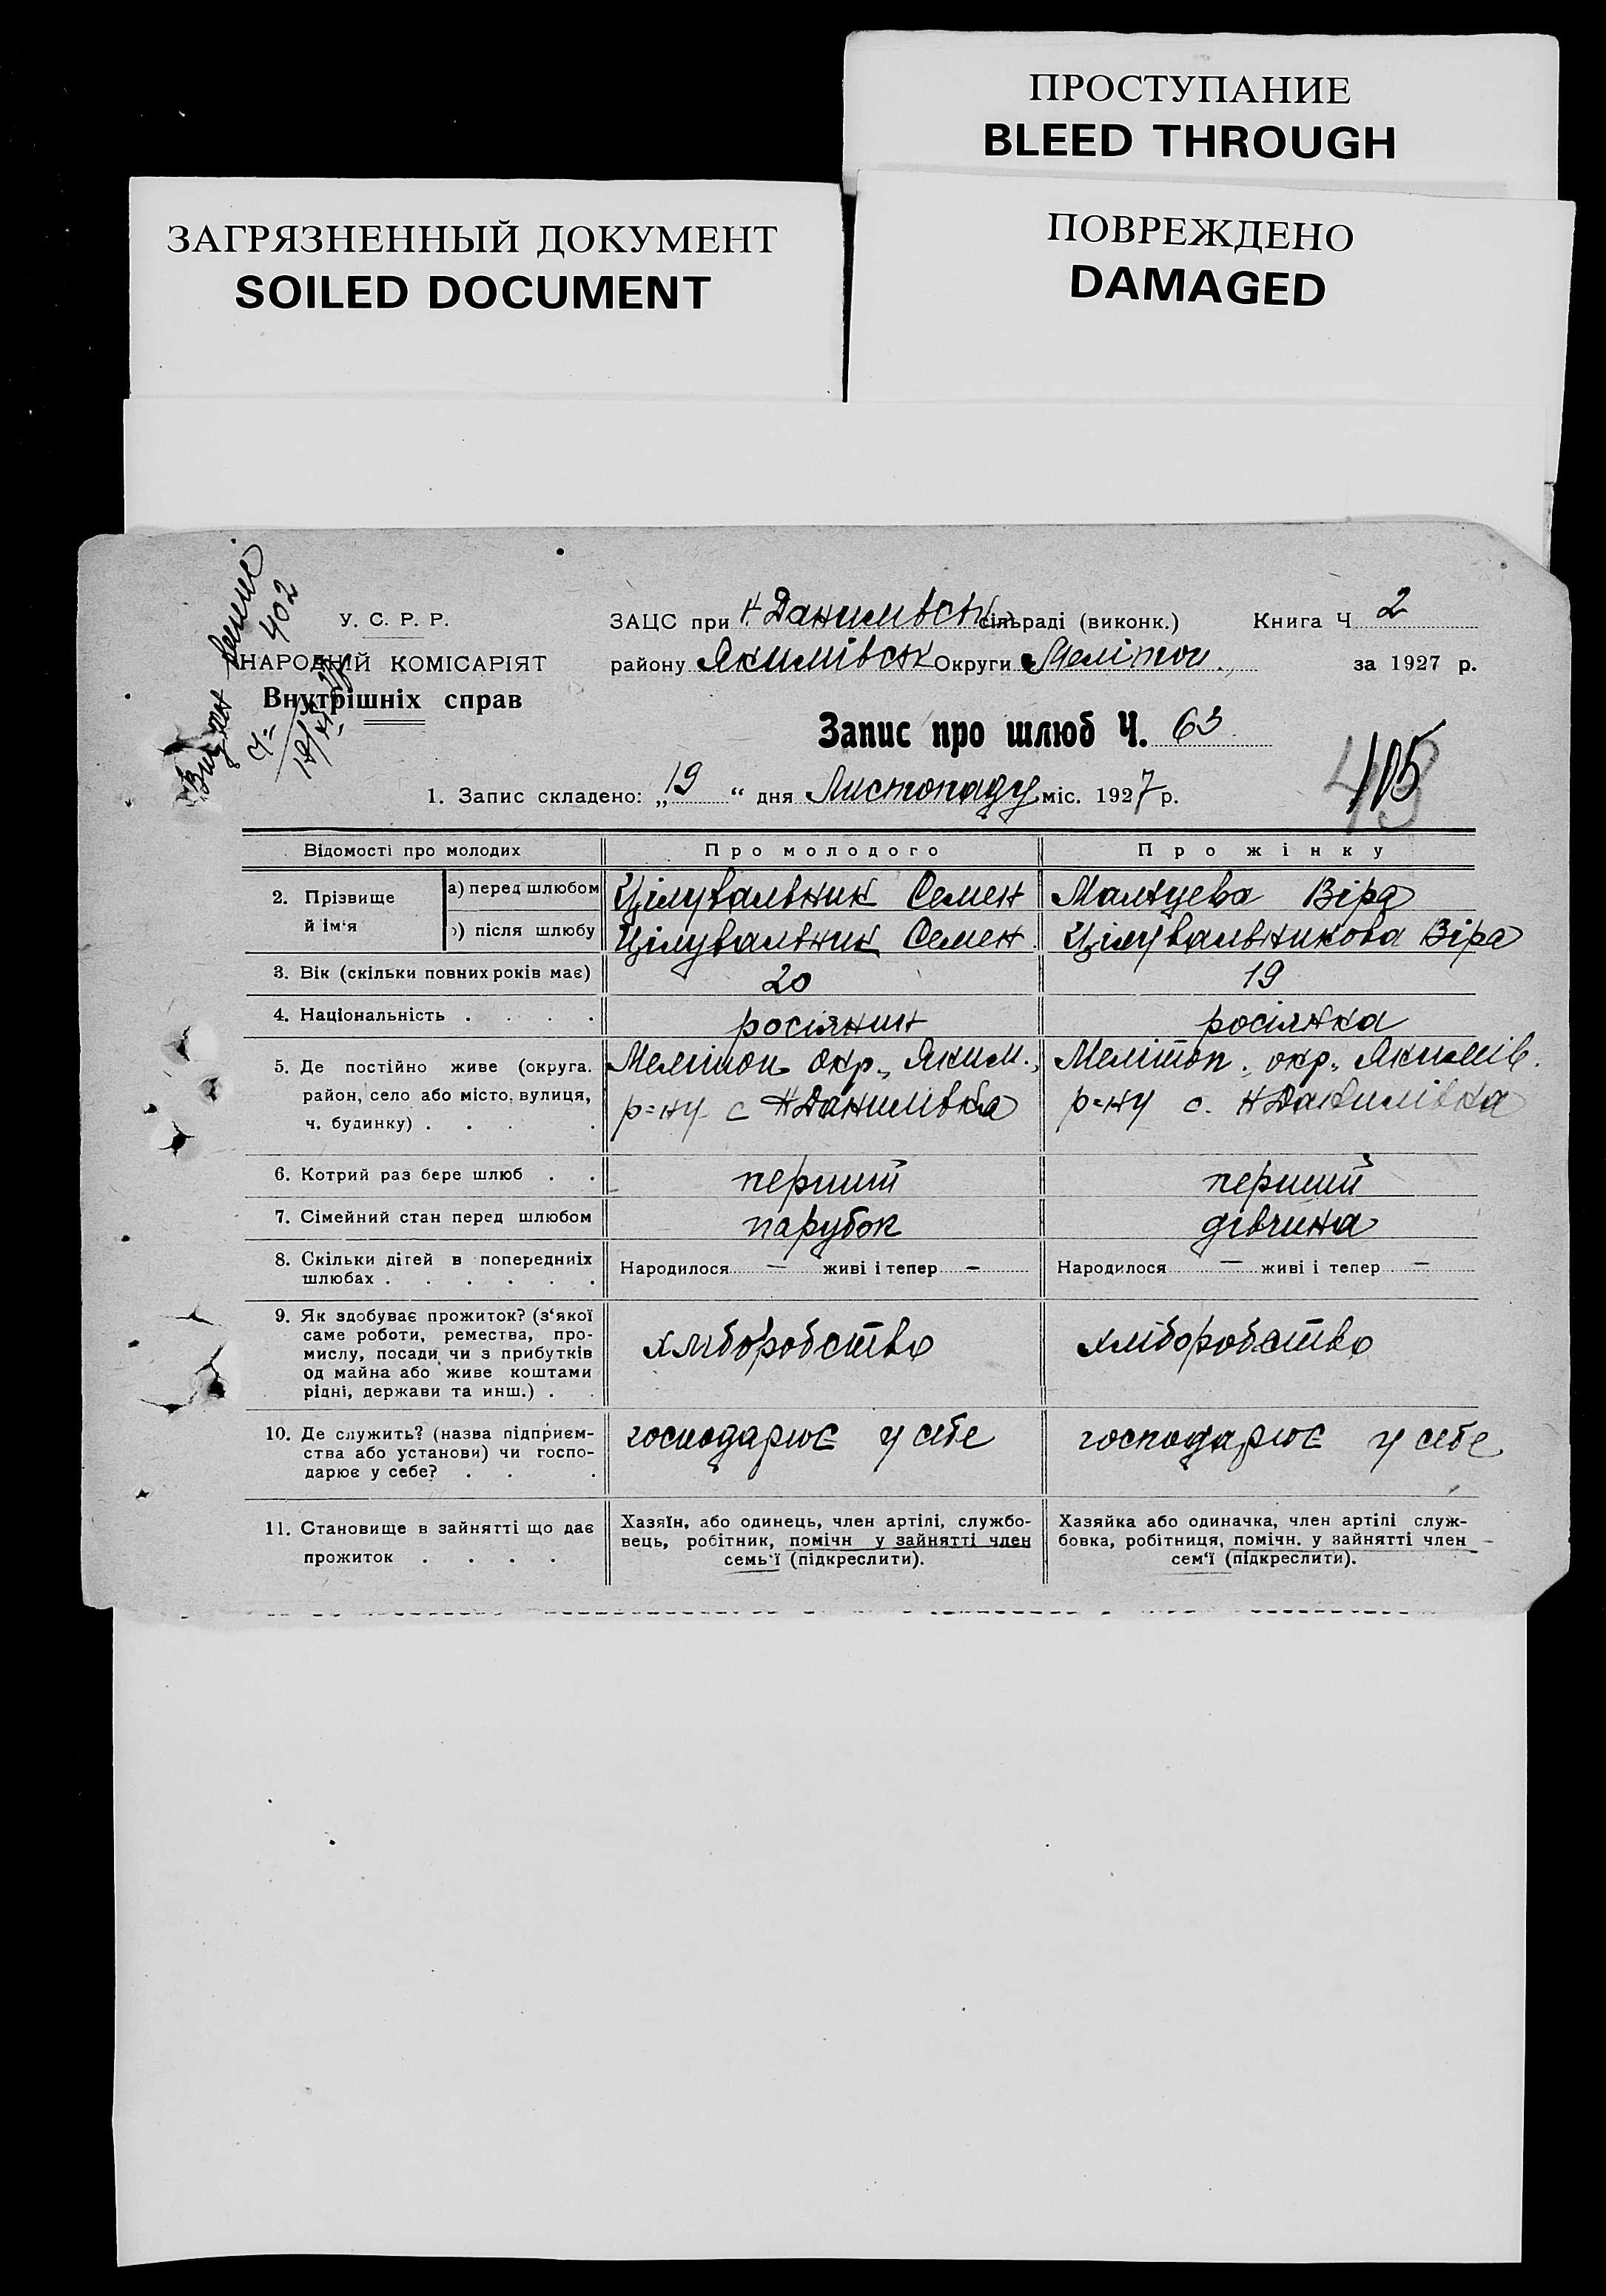 ПРОСТУПАНИЕ
BLEED THROUGH
ЗАГРЯЗНЕННЫЙ ДОКУМЕНТ
SOILED DOCUMENT
ПОВРЕЖДЕНО
DAMAGED
402
У. С. Р. Р.
НАРОДНІЙ КОМІСАРІЯТ
Внутрішніх справ
ЗАЦС при Н Данилівськ сільраді (виконк.) Книга Ч 2
району Якимівськ Округи Мелітоп. за 1927 р.
Запис про шлюб Ч. 63
105
1. Запис складено: „19“ дня Листопаду міс. 1927 р.
Відомості про молодих Про молодого Про жінку
2. Прізвище й ім'я а) перед шлюбом Цілувальник Семен Мальцева Віра
б) після шлюбу Цілувальник Семен Цілувальникова Віра
3. Вік (скільки повних років має) 20 19
4. Національність . . . . росіянин росіянка
5. Де постійно живе (округа, Мелітоп. окр., Яким. Мелітоп. окр., Якимів.
район, село або місто, вулиця, р=ну с НДанилівка р=ну с. НДанилівка
ч. будинку) . . . .
6. Котрий раз бере шлюб . . перший перший
7. Сімейний стан перед шлюбом парубок дівчина
8. Скільки дітей в попередниіх Народилося — живі і тепер — Народилося — живі і тепер —
шлюбах . . . . . .
9. Як здобуває прожиток? (з'якої
саме роботи, ремества, про- хліборобство хліборобство
мислу, посади чи з прибутків
од майна або живе коштами
рідні, держави та инш.) . .
10. Де служить? (назва підприєм- господарює у себе господарює у себе
ства або установи) чи госпо-
дарює у себе? . . .
11. Становище в зайнятті що дає Хазяїн, або одинець, член артілі, службо- Хазяйка або одиначка, член артілі служ-
вець, робітник, помічн у зайнятті член бовка, робітниця, помічн. у зайнятті член
прожиток . . . . семь'ї (підкреслити). сем'ї (підкреслити).